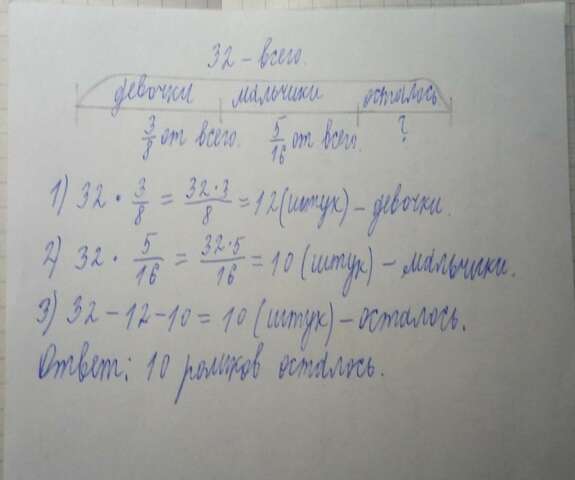 32 - всего.
девочки мальчики осталось
3/8 от всего. 5/16 от всего. ?
1) 32 · 3/8 = 32·3/8 = 12 (штук) - девочки.
2) 32 · 5/16 = 32·5/16 = 10 (штук) - мальчики.
3) 32 - 12 - 10 = 10 (штук) - осталось.
Ответ: 10 роликов осталось.